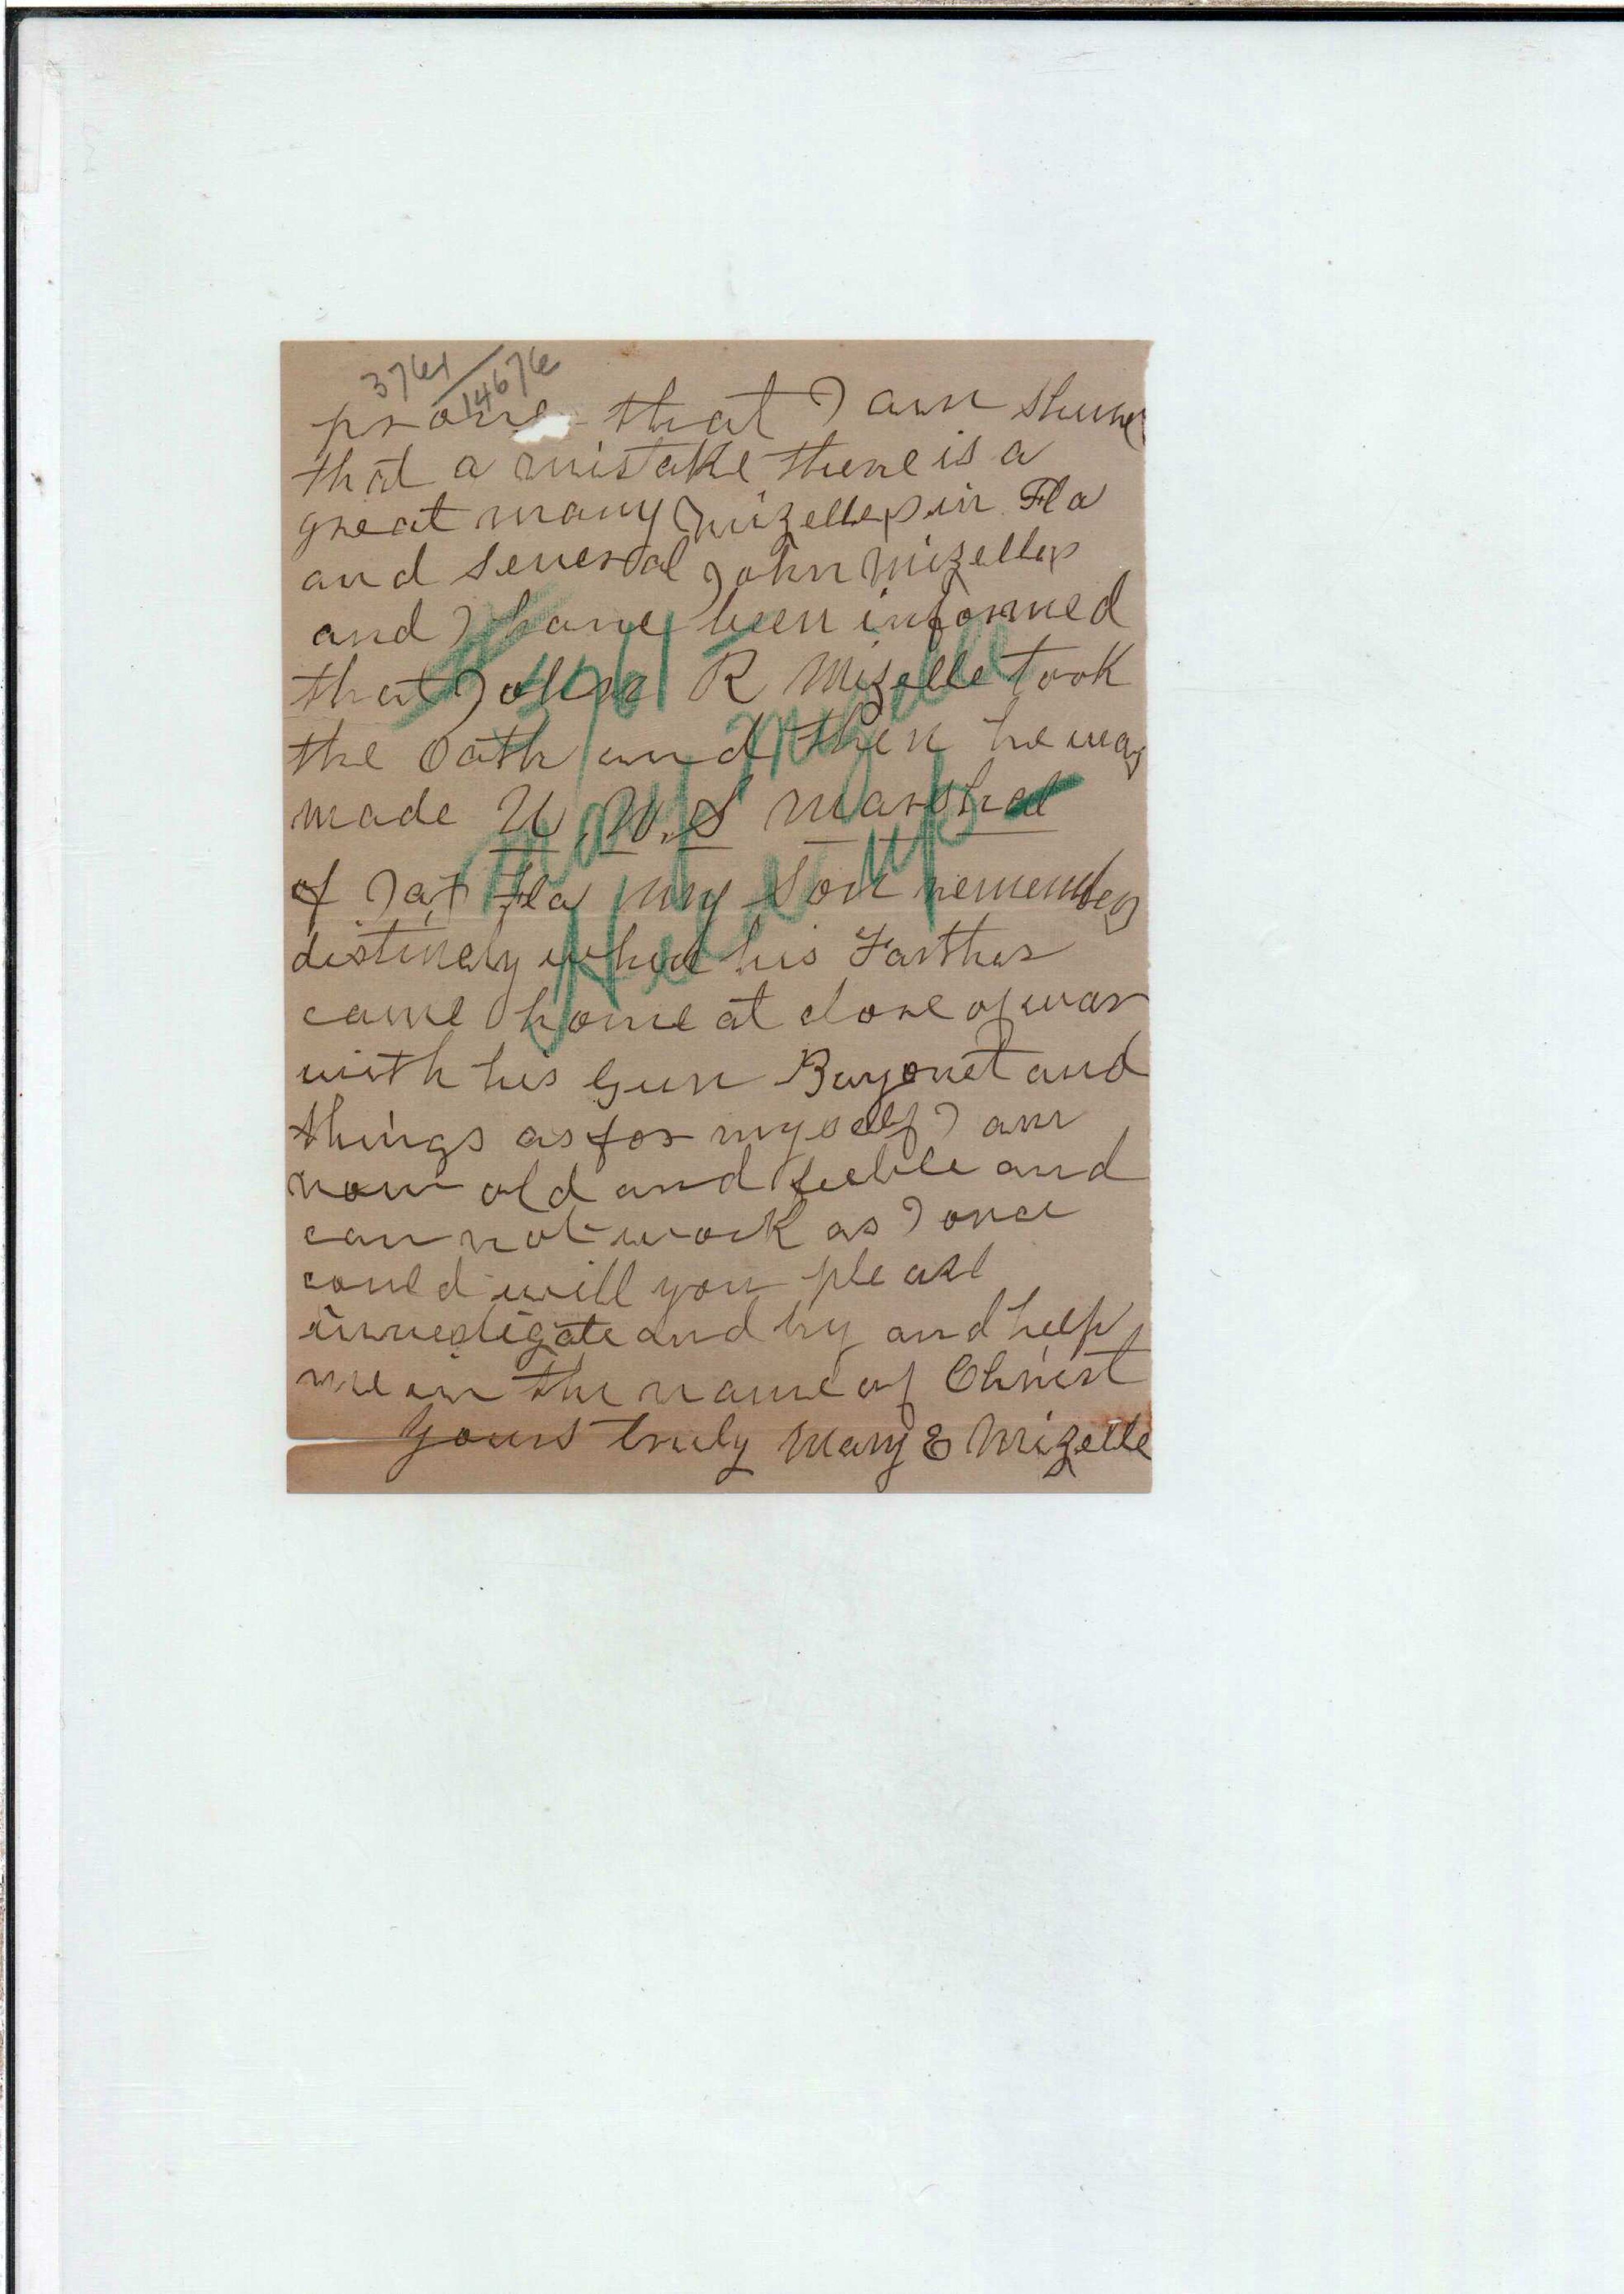 3761/14676
prove that I am shure
that a mistake there is a
great many Mizelles in Fla
and several John Mizelles
and I have been informed
that John R Mizelle took
the Oath and then he was
made U. W. S Marshal
of Jax Fla my Son remembers
distincly when his Farther
came home at close of war
with his Gun Bayonet and
things as for myself I am
now old and feeble and
can not work as I once
could will you please
investigate and try and help
me in the name of Christ
Yours truly Mary E Mizelle
3761
Mary Mizelle